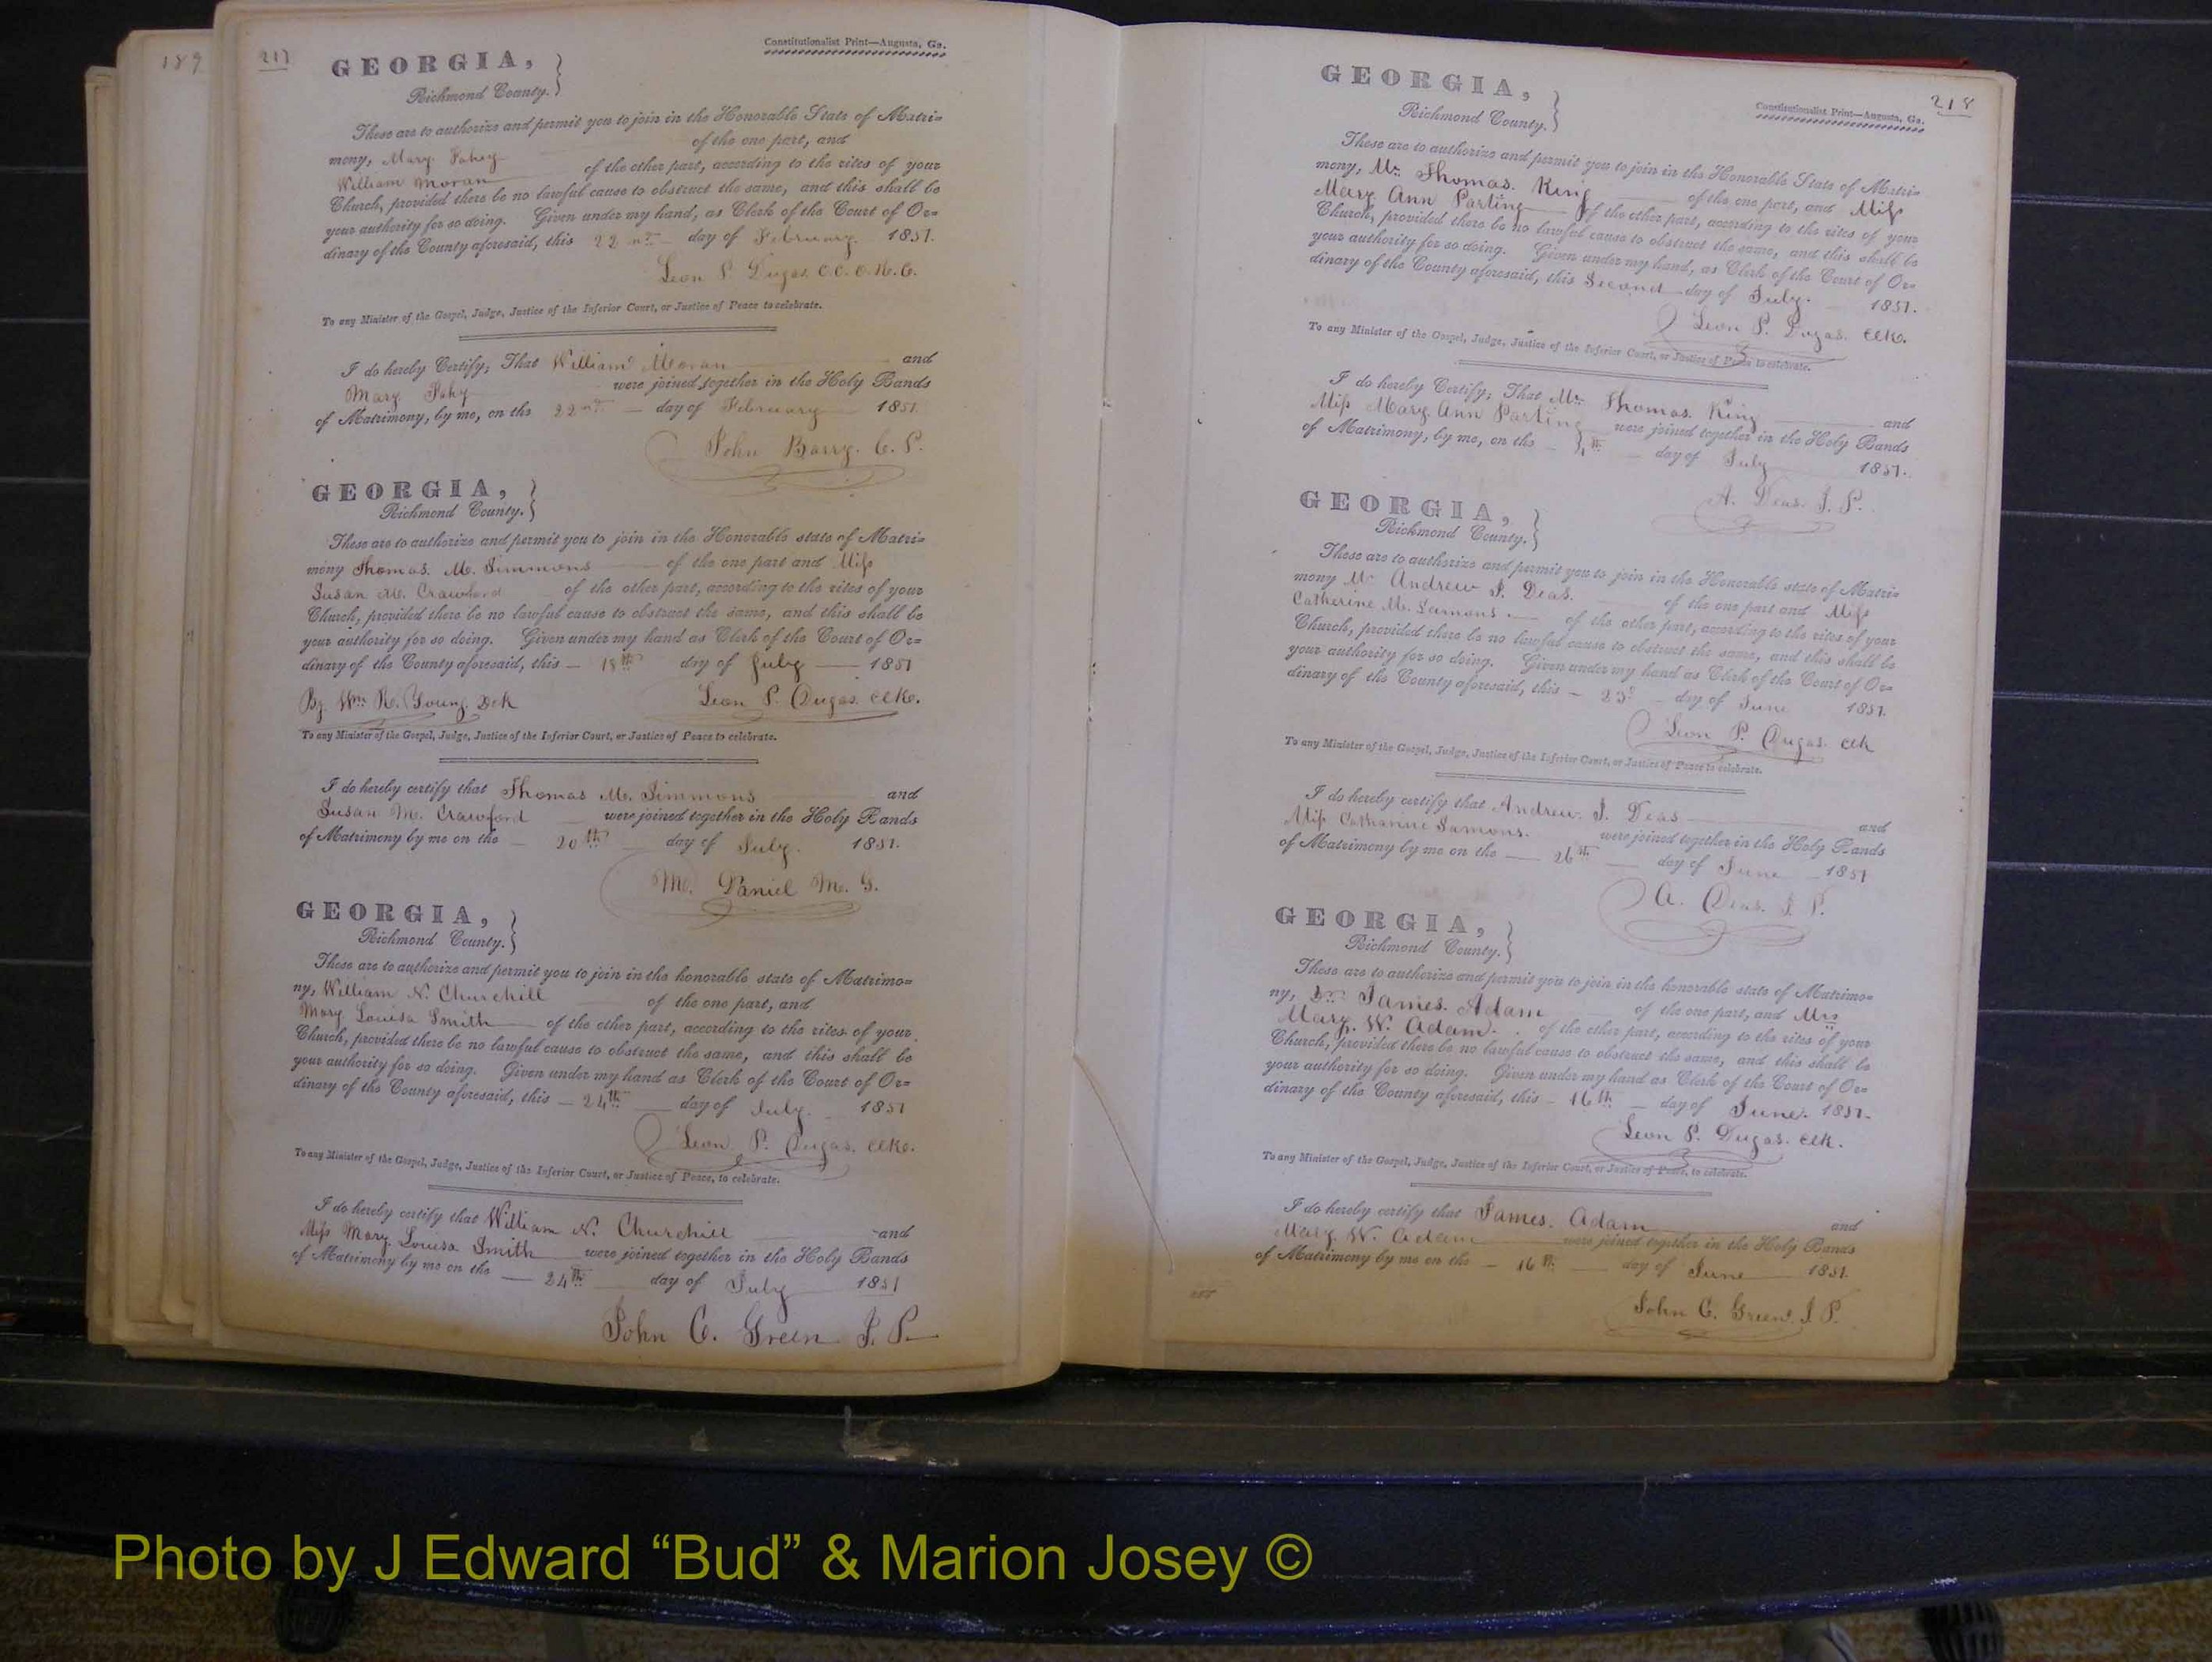 189
217
Constitutionalist Print—Augusta, Ga.
GEORGIA,
Richmond County.
These are to authorize and permit you to join in the Honorable State of Matri=
mony, Mary Fahey of the one part, and
William Moran of the other part, according to the rites of your
Church, provided there be no lawful cause to obstruct the same, and this shall be
your authority for so doing. Given under my hand, as Clerk of the Court of Or=
dinary of the County aforesaid, this 22nd day of February 1851.
Leon P. Dugas. C.C.O.R.C.
To any Minister of the Gospel, Judge, Justice of the Inferior Court, or Justice of Peace to celebrate.
I do hereby Certify, That William Moran and
Mary Fahy were joined together in the Holy Bands
of Matrimony, by me, on the 22nd day of February 1851
John Barry. C. P.
GEORGIA,
Richmond County.
These are to authorize and permit you to join in the Honorable state of Matri=
mony Thomas. M. Simmons of the one part and Miss
Susan M. Crawford of the other part, according to the rites of your
Church, provided there be no lawful cause to obstruct the same, and this shall be
your authority for so doing. Given under my hand as Clerk of the Court of Or=
dinary of the County aforesaid, this 18th day of July 1851
By Wm R. Young Dck Leon P. Dugas. Clk.
To any Minister of the Gospel, Judge, Justice of the Inferior Court, or Justice of Peace to celebrate.
I do hereby certify that Thomas M. Simmons and
Susan M. Crawford were joined together in the Holy Bands
of Matrimony by me on the 20th day of July. 1851.
M. Daniel M. G.
GEORGIA,
Richmond County.
These are to authorize and permit you to join in the honorable state of Matrimo=
ny, William N. Churchill of the one part, and
Mary Louisa Smith of the other part, according to the rites of your
Church, provided there be no lawful cause to obstruct the same, and this shall be
your authority for so doing. Given under my hand as Clerk of the Court of Or=
dinary of the County aforesaid, this 24th day of July. 1851
Leon P. Dugas. Clk.
To any Minister of the Gospel, Judge, Justice of the Inferior Court, or Justice of Peace, to celebrate.
I do hereby certify that William N. Churchill and
Miss Mary Louisa Smith were joined together in the Holy Bands
of Matrimony by me on the 24th day of July 1851
John C. Green J. P.
218
Constitutionalist Print—Augusta, Ga.
GEORGIA,
Richmond County.
These are to authorize and permit you to join in the Honorable State of Matri=
mony, Mr. Thomas. King of the one part, and Miss
Mary Ann Parting of the other part, according to the rites of your
Church, provided there be no lawful cause to obstruct the same, and this shall be
your authority for so doing. Given under my hand, as Clerk of the Court of Or=
dinary of the County aforesaid, this Second day of July. 1851.
Leon P. Dugas. Clk.
To any Minister of the Gospel, Judge, Justice of the Inferior Court, or Justice of Peace to celebrate.
I do hereby Certify, That Mr. Thomas. King and
Miss Mary Ann Parting were joined together in the Holy Bands
of Matrimony, by me, on the day of July 1851.
A. Deas. J. P.
GEORGIA,
Richmond County.
These are to authorize and permit you to join in the Honorable state of Matri=
mony Mr Andrew J. Deas. of the one part and Miss
Catherine M. Samons. of the other part, according to the rites of your
Church, provided there be no lawful cause to obstruct the same, and this shall be
your authority for so doing. Given under my hand as Clerk of the Court of Or=
dinary of the County aforesaid, this day of June 1851.
Leon P. Dugas. Clk
To any Minister of the Gospel, Judge, Justice of the Inferior Court, or Justice of Peace to celebrate.
I do hereby certify that Andrew. J. Deas and
Miss Catharine Samons. were joined together in the Holy Bands
of Matrimony by me on the 26th day of June 1851
A. Deas. J. P.
GEORGIA,
Richmond County.
These are to authorize and permit you to join in the honorable state of Matrimo=
ny, Dr. James. Adam of the one part, and Mrs
Mary. W. Adam. of the other part, according to the rites of your
Church, provided there be no lawful cause to obstruct the same, and this shall be
your authority for so doing. Given under my hand as Clerk of the Court of Or=
dinary of the County aforesaid, this 16th day of June. 1851.
Leon P. Dugas. Clk.
To any Minister of the Gospel, Judge, Justice of the Inferior Court, or Justice of Peace, to celebrate.
I do hereby certify that James. Adam and
Mary. W. Adam were joined together in the Holy Bands
of Matrimony by me on the 16th day of June 1851.
John C. Green. J. P.
Photo by J Edward “Bud” & Marion Josey ©